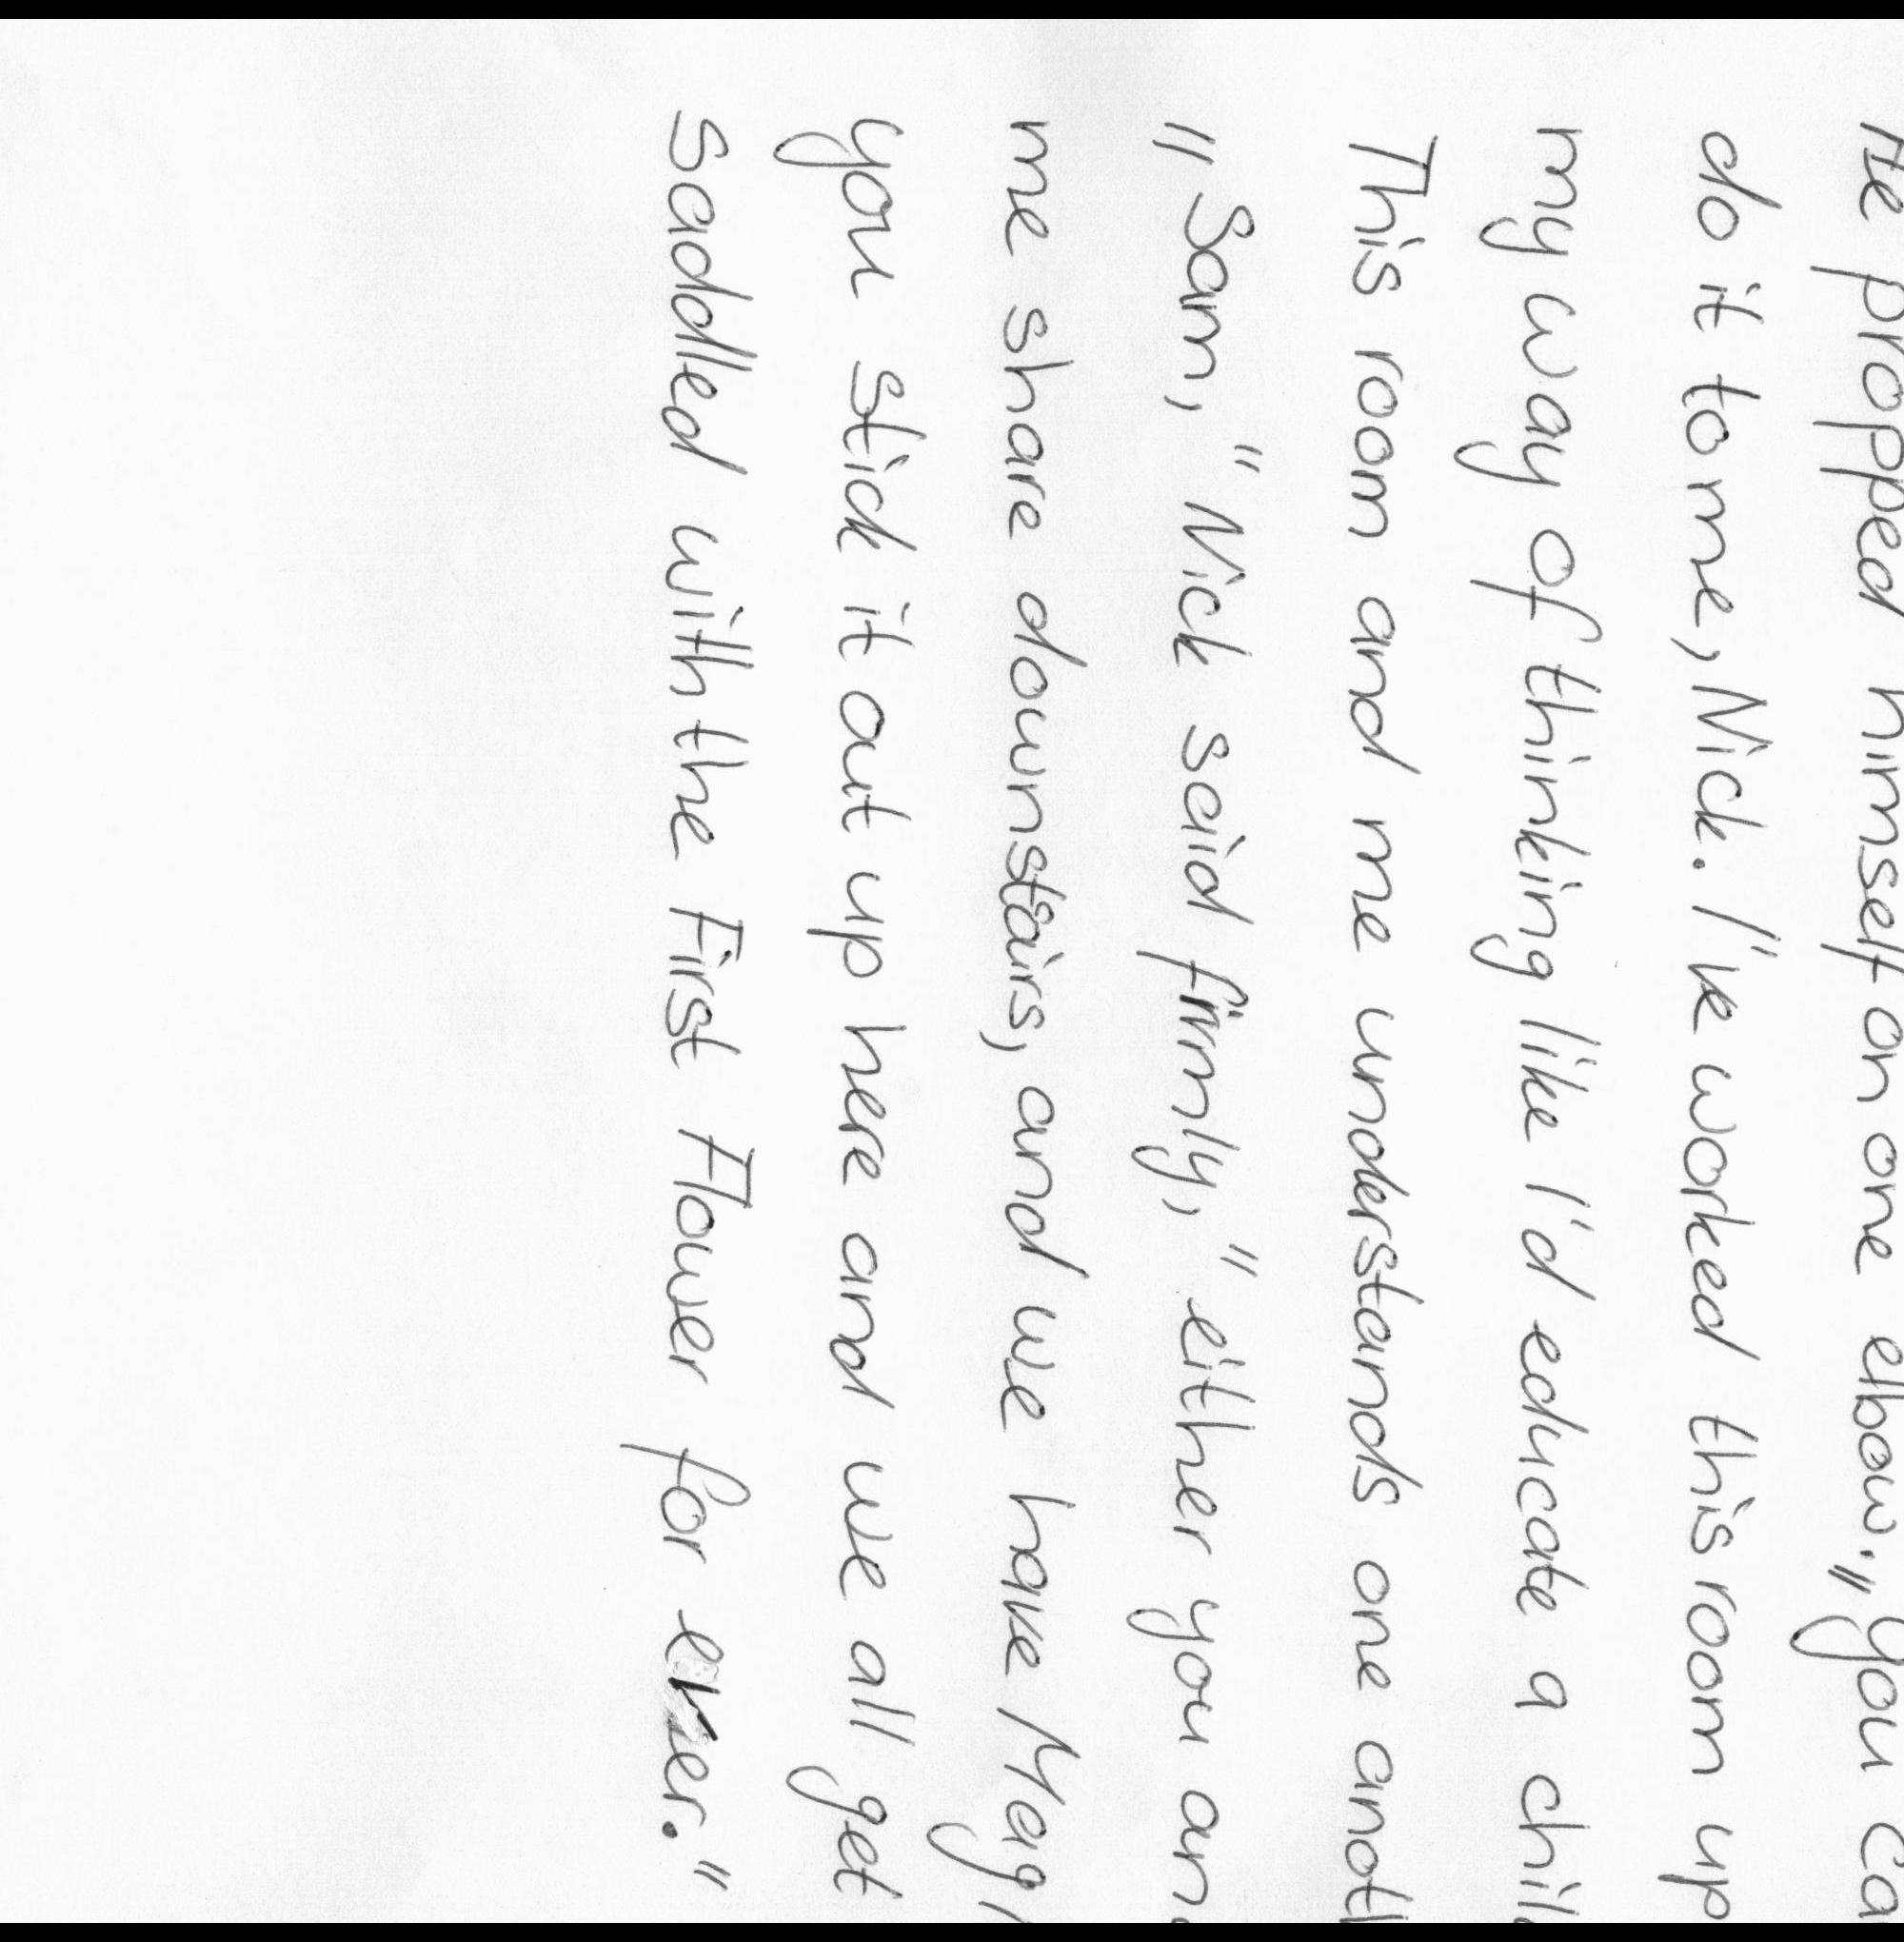 He propped himself on one elbow. „you ca
do it to me, Nick. I"ve worked this room up
my way of thinking like I'd educate a chil
This room and me understands one anoth
"Sam," Nick said firmly, "either you an
me share downstairs, and we have Meg,
you stick it out up here and we all get
saddled with the First Flower for ever."